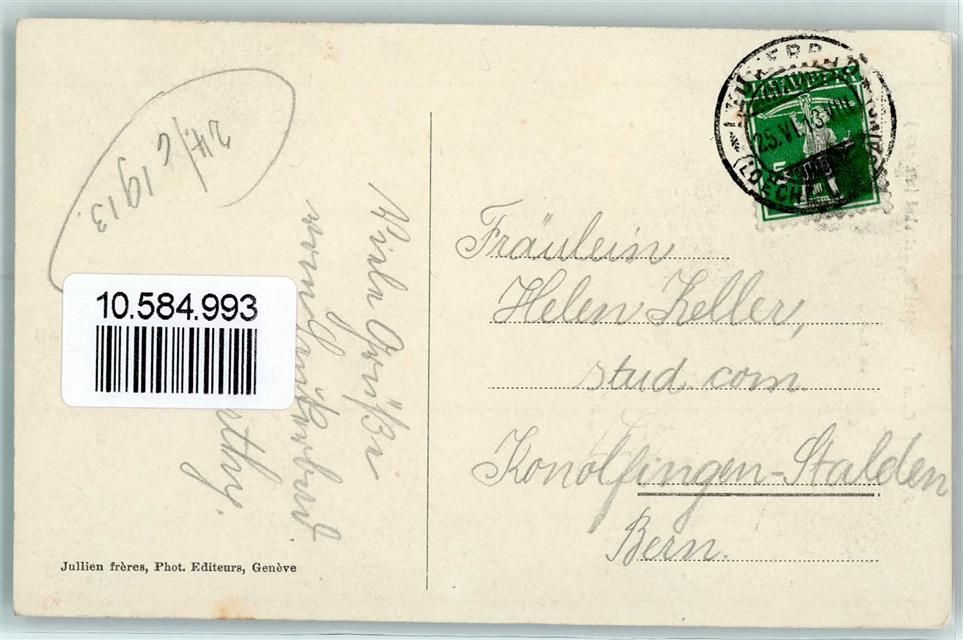 24/6 1913.
10.584.993
Viele Grüße
vom Leukerbad.
Fräulein
Helen Keller,
stud. com
Konolfingen-Stalden
Bern.
25.VI.13.VIII
HELVETIA
5
Jullien frères, Phot. Editeurs, Genève